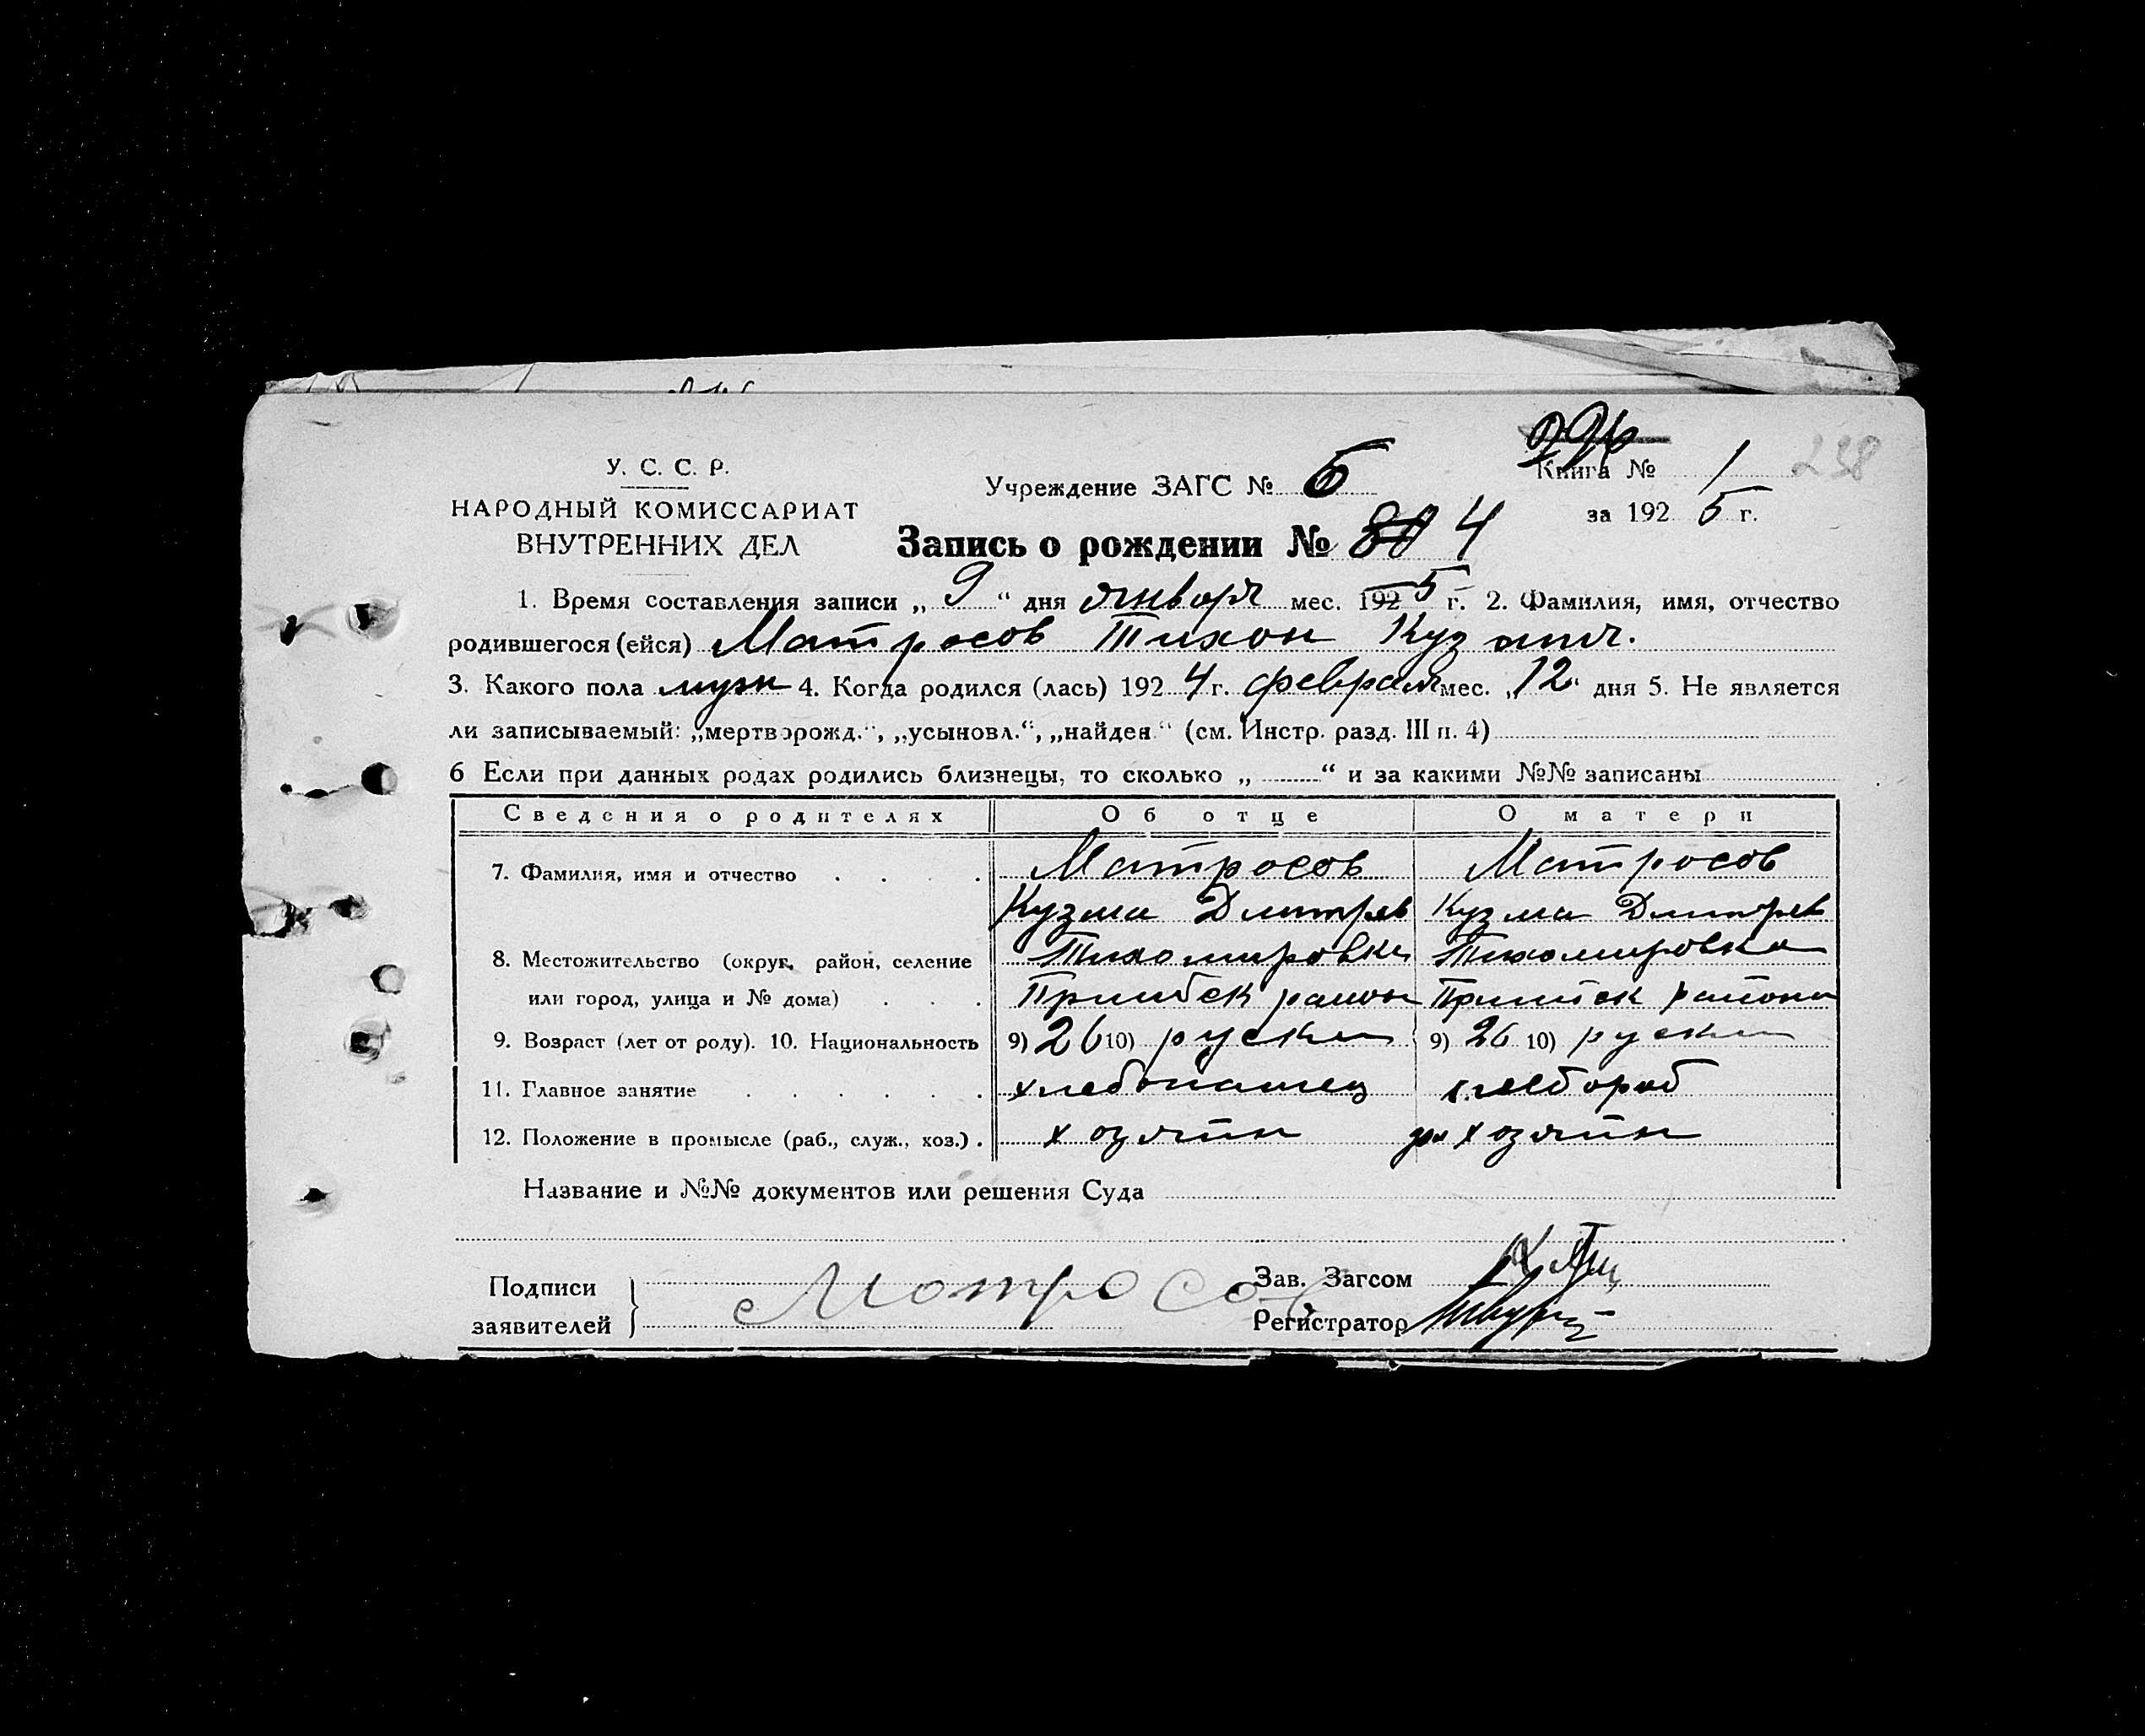 238
У. С. С. Р.
НАРОДНЫЙ КОМИССАРИАТ
ВНУТРЕННИХ ДЕЛ
Учреждение ЗАГС № 5
Книга № 1
за 1925 г.
Запись о рождении № 4
1. Время составления записи „ 9 “ дня января мес. 1925 г. 2. Фамилия, имя, отчество
родившегося (ейся) Матросов Тихон Кузмич.
3. Какого пола муж 4. Когда родился (лась) 1924 г. февраля мес. „12“ дня 5. Не является
ли записываемый: „мертворожд.“, „усыновл.“, „найден“ (см. Инстр. разд. III п. 4)
6 Если при данных родах родились близнецы, то сколько „ “ и за какими №№ записаны
Сведения о родителях Об отце О матери
7. Фамилия, имя и отчество Матросов Матросов
Кузма Дмитрев Кузма Дмитрев
8. Местожительство (округ, район, селение Тихомировка Тихомировка
или город, улица и № дома) район района
9. Возраст (лет от роду). 10. Национальность 9) 26 10) руски 9) 26 10) руски
11. Главное занятие хлебопашец хлебороб
12. Положение в промысле (раб., служ., хоз.) хозяйн хозяйн
Название и №№ документов или решения Суда
Подписи
заявителей
Матросов
Зав. Загсом
Регистратор